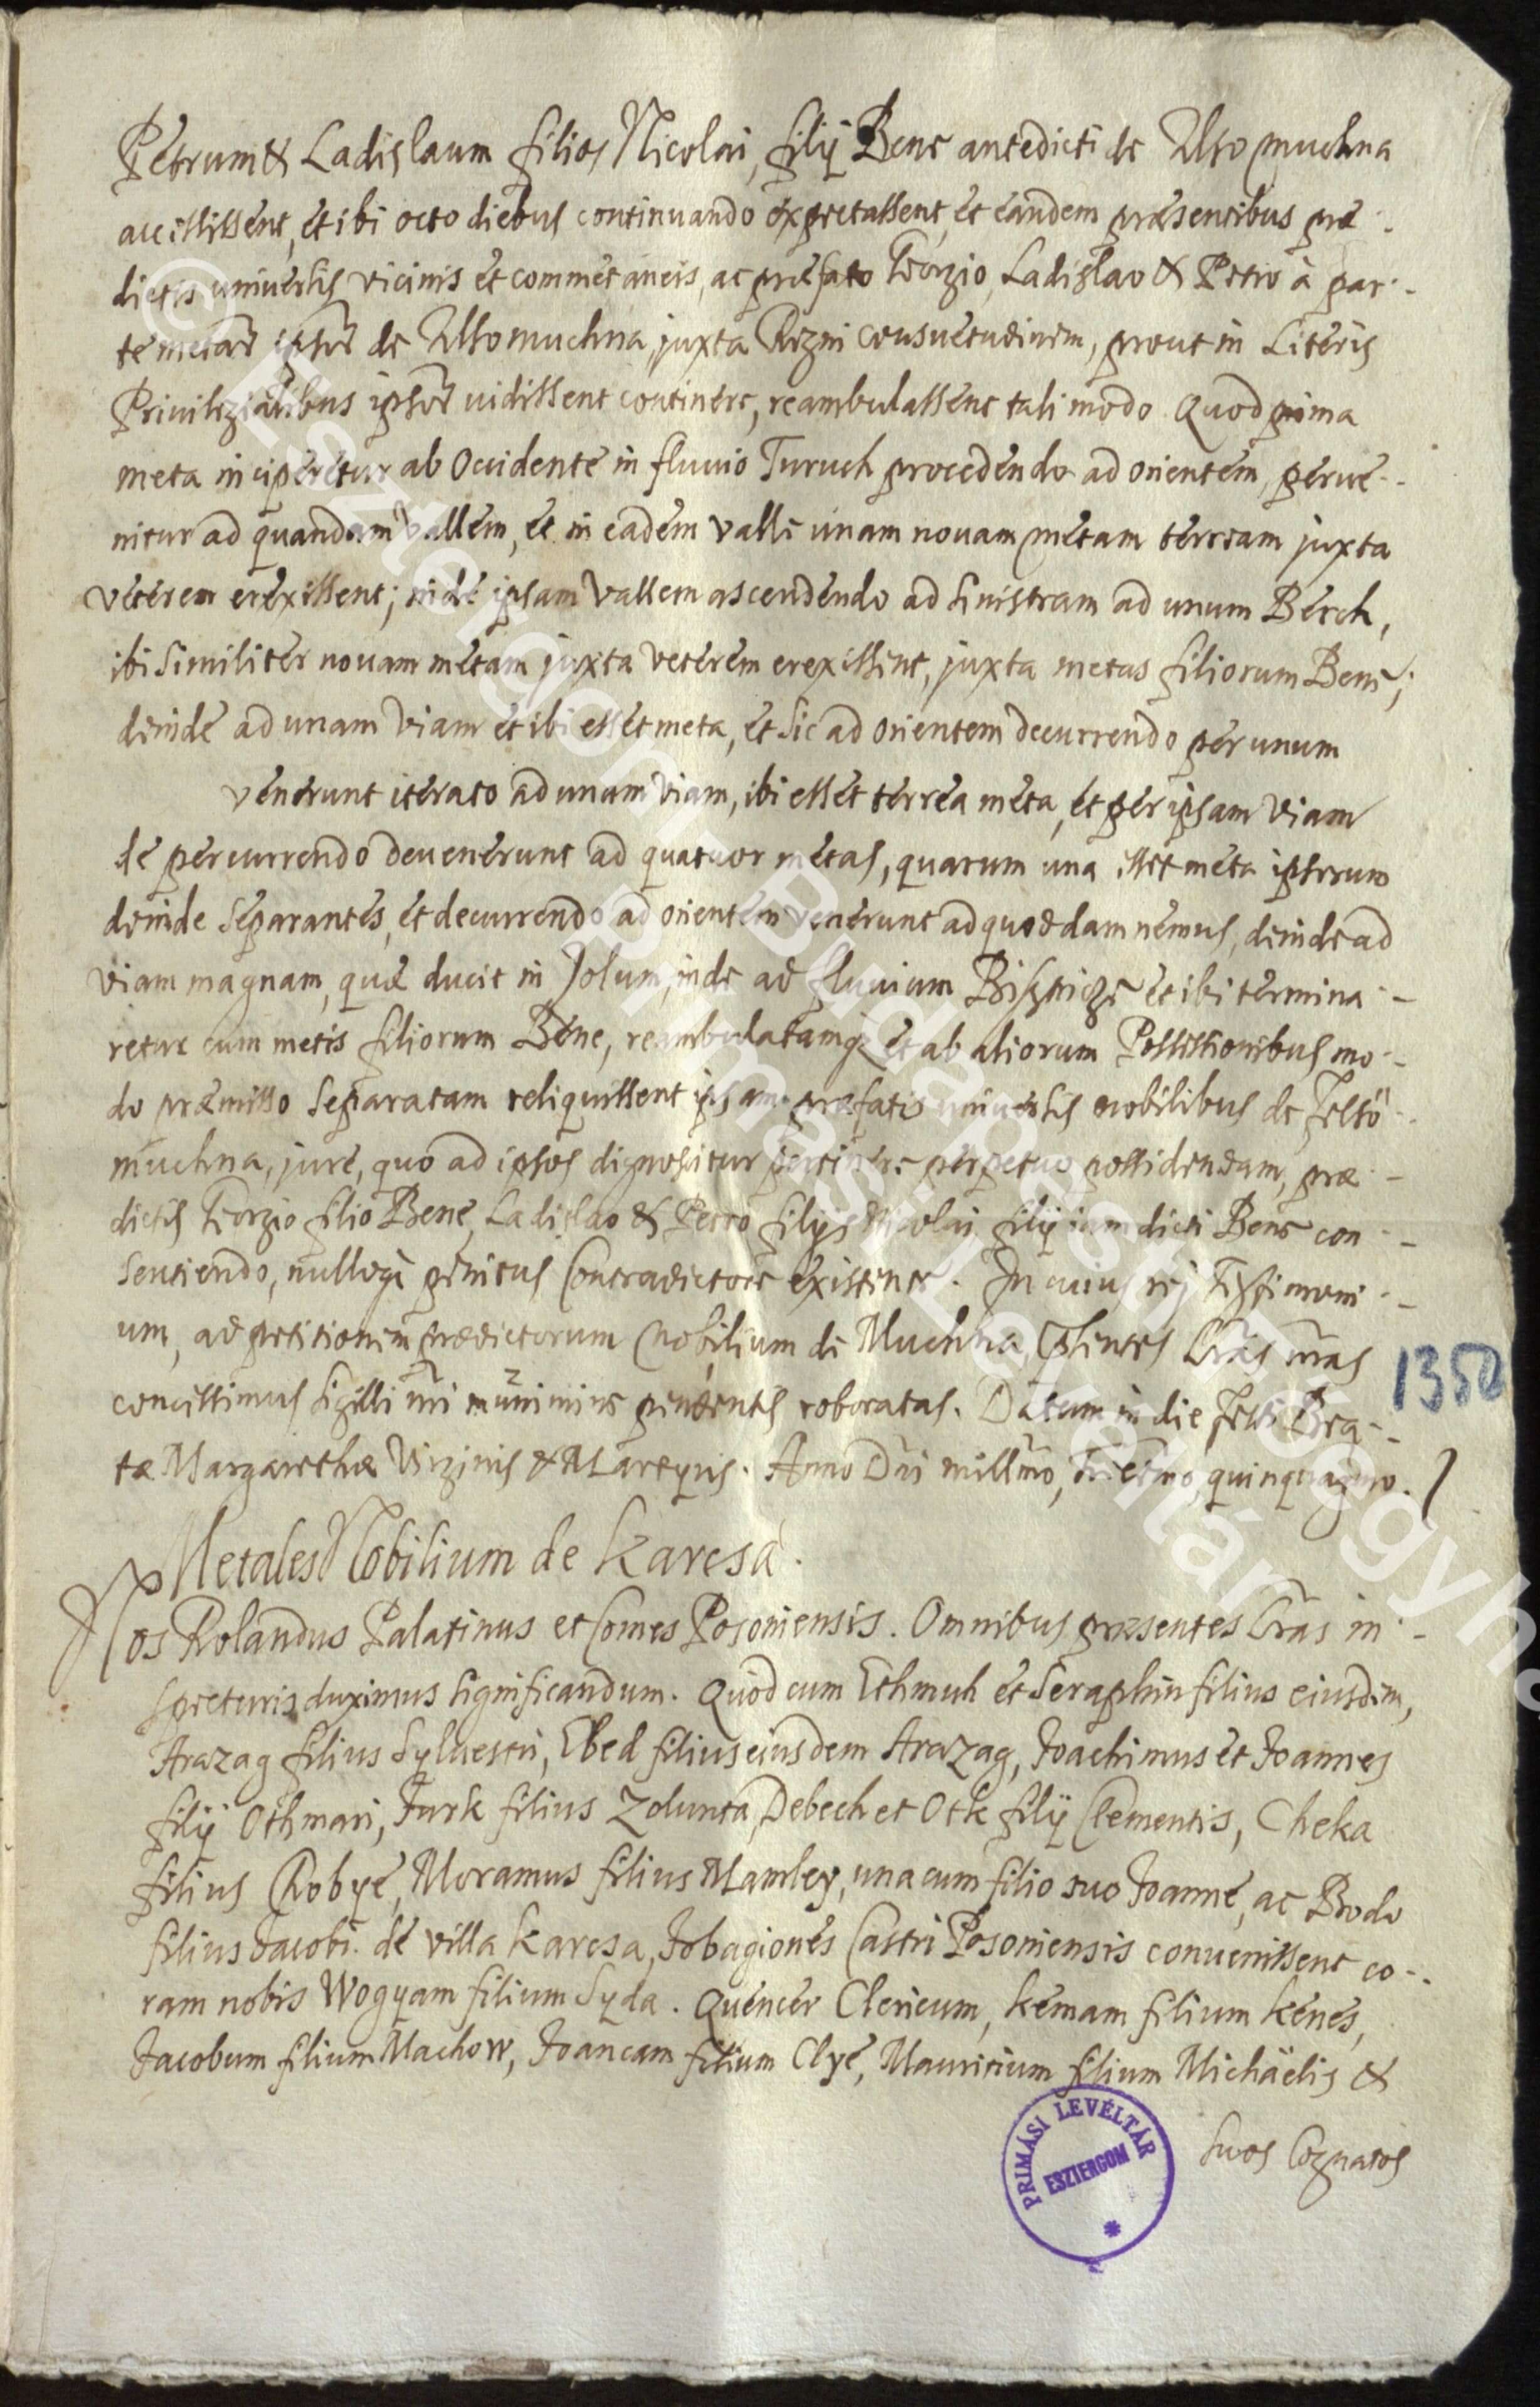 Petrum & Ladislaum filios Nicolai, filÿ Bene antedicti de Also muchna
accessissent, et ibi octo diebus continuando expectassent, et eandem præsentibus præ-
dictis universis vicinis et commetaneis, ac præfato Georgio, Ladislao & Petro à par-
te metarũ ipsorũ de Alsomuchna, juxta Regni consuetudinem, prout in Literis
Privilegialibus ipsorũ vidissent contineri, reambulassent tali modo. Quod prima
meta inciperetur ab Occidente in fluvio Turuch procedendo ad orientem, perve-
nitur ad quandam vallem, et in eadem valle unam novam metam terream juxta
veterem erexissent; inde ipsam vallem ascendendo ad sinistram ad unum Berch,
ibi similiter novam metam juxta veterem erexissent, juxta metas filiorum Bene;
deinde ad unam viam et ibi esset meta, et sic ad orientem decurrendo per unum
venerunt iterato ad unam viam, ibi esset terrea meta, et per ipsam viam
de percurrendo devenerunt ad quatuor metas, quarum una esset meta ipsorum
deinde separantes, et decurrendo ad orientem venerunt ad quoddam nemus, deinde ad
viam magnam, quæ ducit in Jolum, inde ad fluvium Bistriche et ibi termina-
retur cum metis filiorum Bene, reambulatamq; et ab aliorum Possessionibus mo-
do præmisso separatam reliquissent ipsam præfatis universis nobilibus de Felsö
muchna, jure, quo ad ipsos dignoscitur pertinere perpetuo possidendam, præ-
dictis Georgio filio Bene, Ladislao & Petro filÿs Nicolai filÿ iam dicti Bene con-
sentiendo, nulloq; penitus Contradictore existente. In cuius rei testimoni-
um, ad petitionem prædictorum Nobilium de Muchna, p̃sentes Lr̃as nr̃as
concessimus sigilli nr̃i munimine pendentis roboratas. Datum in die festi Bea-
tæ Margarethæ Virginis & Martyris. Anno Dn̄i millm̃o, Trecm̃o, quinquagm̃o.
1350
Metales Nobilium de Karcsa.
Nos Rolandus Palatinus et Comes Posoniensis. Omnibus præsentes Lr̃as in-
specturis duximus significandum. Quod cum Ethmuh et Seraphin filius eiusdem,
Arazag filius Sylvestri, Ebed filius eiusdem Arazag, Joachimus et Joannes
filÿ Othmari, Turk filius Zolunta, Debech et Otk filÿ Clementis, Cheka
filius Chobye, Moramus filius Mamley, una cum filio suo Joanne, ac Brodo
filius Jacobi. de villa Karcsa, Jobagiones Castri Posoniensis convenissent co-
ram nobis Wogyam filium Syda. Quencer Clericum, Kemam filium Kenes,
Jacobum filium Machow, Joancam filium Elye, Mauritium filium Michäelis &
suos Cognatos
PRIMÁSI LEVÉLTÁR
ESZTERGOM
© Esztergom-Budapesti Főegyhá
Prímási Levéltár